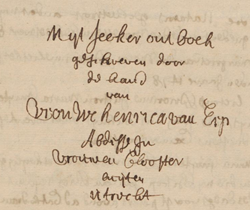 Uÿt seeker out boek
geschreven door
de hand
van
Vrouwe henrica van Erp
Abdisse In
vrouwen Clooster
buÿten
utrecht